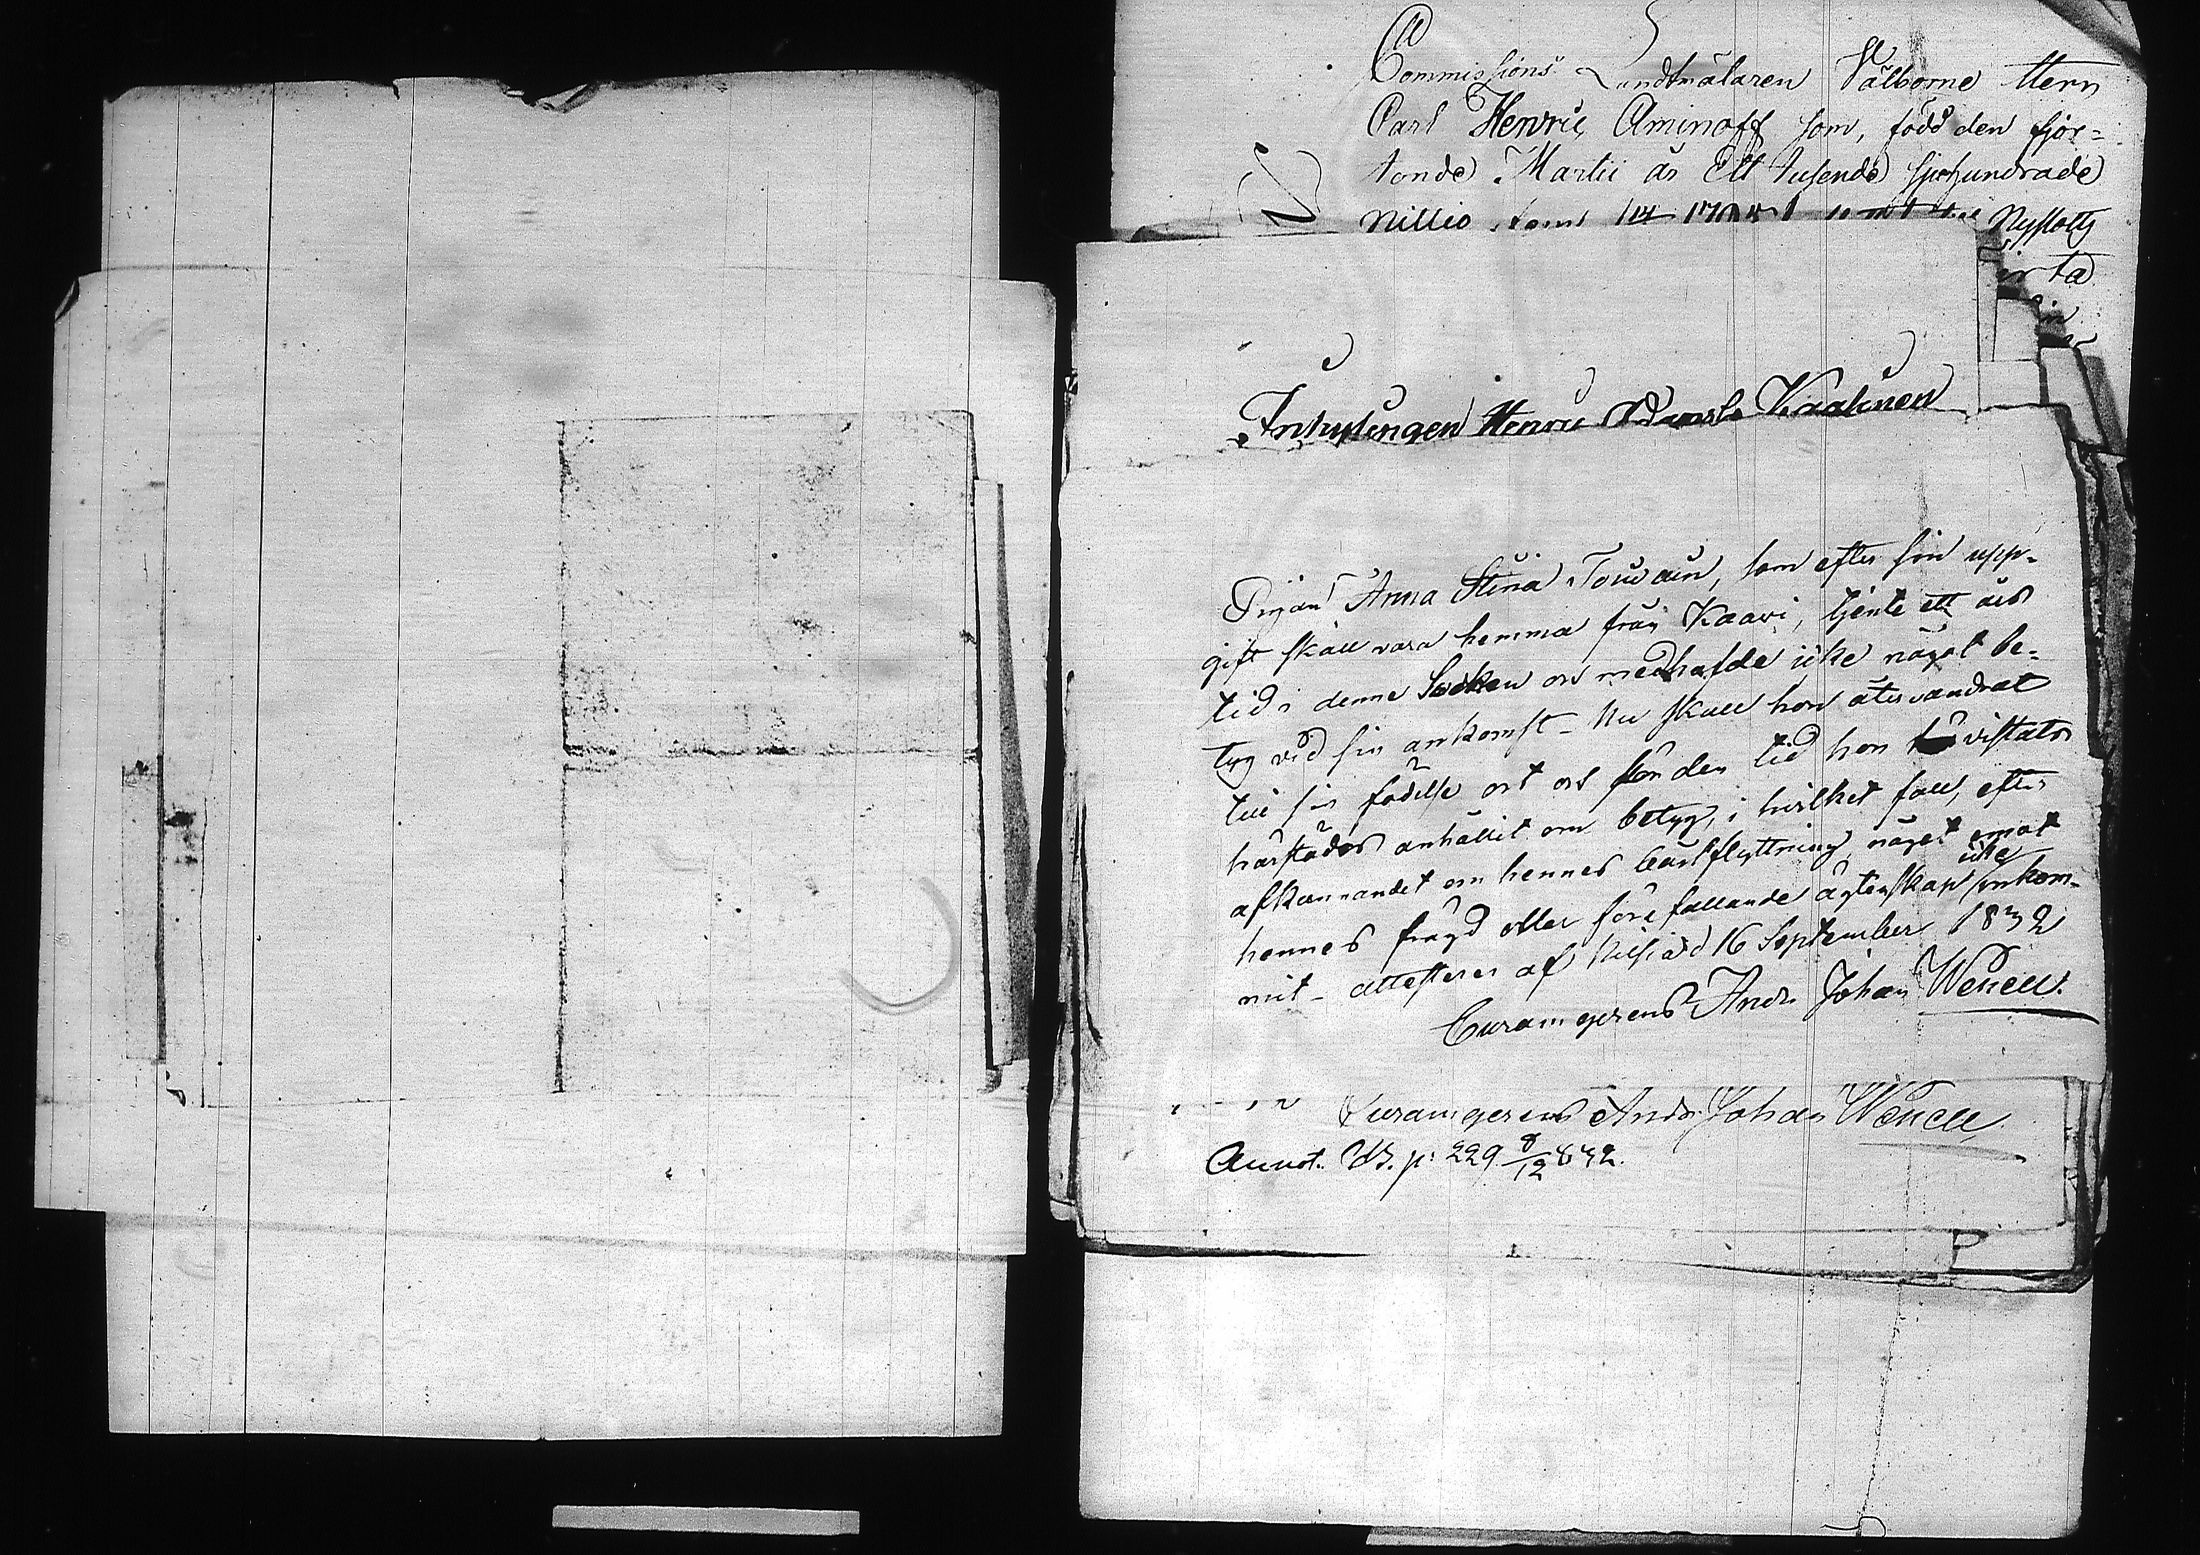 Commissions Landtmälaren Välborne Herr
Carl Henric Aminoff som, född den fjor-
tonde Martii år Ett tusende sjuhundrade
Nittio Nyslotts
Inhysingen Henric Kaakinen
Pigan Anna Stina Toivain, som efter sin upp-
gift skall vara hemma från Kaavi, tjente ett års
tid i denne Socken och medhafde icke något be-
tyg vid sin ankomst - Nu skall hon återvandrat
till sin födelse ort och för den tid hon vistats
härstädes anhållit om betyg, i hvilket fall, efter
afkunnandet om hennes bortflyttning något emot
hennes frägd eller före fallande ägtenskap icke inkom-
mit - attesteres af Nilsiä d 16 September 1832
Curam gerens Andr Johan Wenell.
Curam gerens Andr. Johan Wenell
Annot. p: 229 8/12 832.